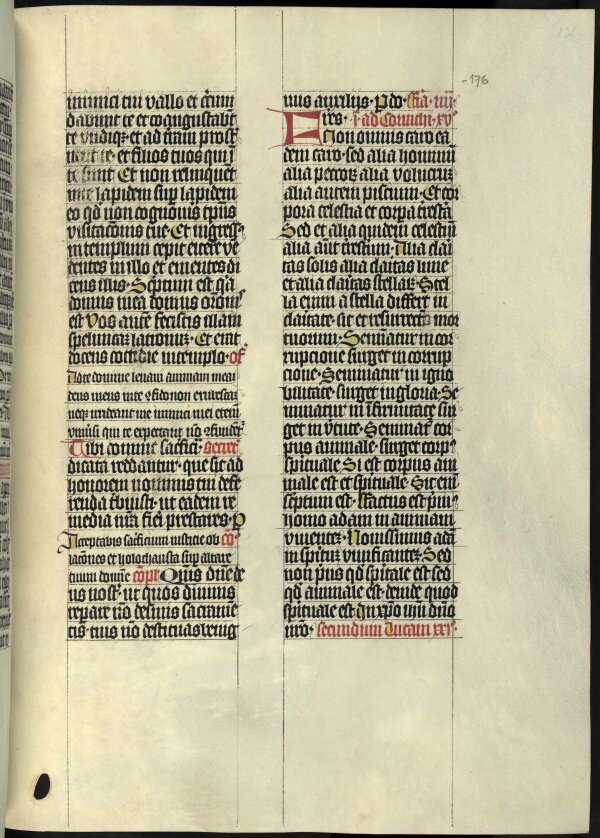 inimici tui vallo et circum
dabunt te et coangustabunt
te undiqz et ad terram prost̾
nent te et filios tuos qui ī
te sunt Et non relinquet
in te lapidem sup lapidem
eo qd non cognovis tpus
visitacōnis tue Et ingress⁹
in templum cepit eicere ve
dentes in illo et ementes di
cens illis Scptum est qa
domus mea domus orōnis
est Vos autē fecistis illam
speluncaz latronuz Et erat
docens cottidie in templo of
Ad te domine levavi animam mea
deus meus in te ɔfido non erubescaz
neqz irrideant me inimici mei etem
univsi qui te expectant nō ɔfundet̾
Tibi domine sacfici secret̾
dicata reddantur que sic ad
honorem nominis tui defe
renda tbuisti ut eadem re
media nra fieri prestares P
Acceptabis sacrificium iusticie ob co
lacōnes et holochausta sup altare
tuum domie cōpl Quis dne de
us nost̾ ut quos divinis
reparare nō desinis sacrame
tis tuis nō destituas benig
nus auxiliis P do fria iiii
Fres i ad Corinthi xv
Non omnis caro ea
dem caro sed alia hominū
alia pecoz alia volucruz
alia autem piscium Et cor
pora celestia et corpa trestia
Sed et alia quidem celestiū
alia aut trestium Alia clai
tas solis alia claitas lune
et alia claitas stellaz Stel
la enim a stella differt in
claitate sic et resurrectō mor
tuorum Seminatur in cor
rupcione surget in corrup
cione Seminatur in igno
bilitate surget in gloria Se
minatur in ifirmitate sur
get in vtute Seminat cor
pus animale surget corp⁹
spirituale Si est corpus ani
male est et spirituale Sic em
scptum est Factus est pm⁹
homo adam in animam
viventez Novissimus adā
in spiritu vivificantez Sed
non prius qd spirtale est sed
qd animale est deinde quod
spirituale est In xpo ihu dno
nro secundum Lucam xxi
176